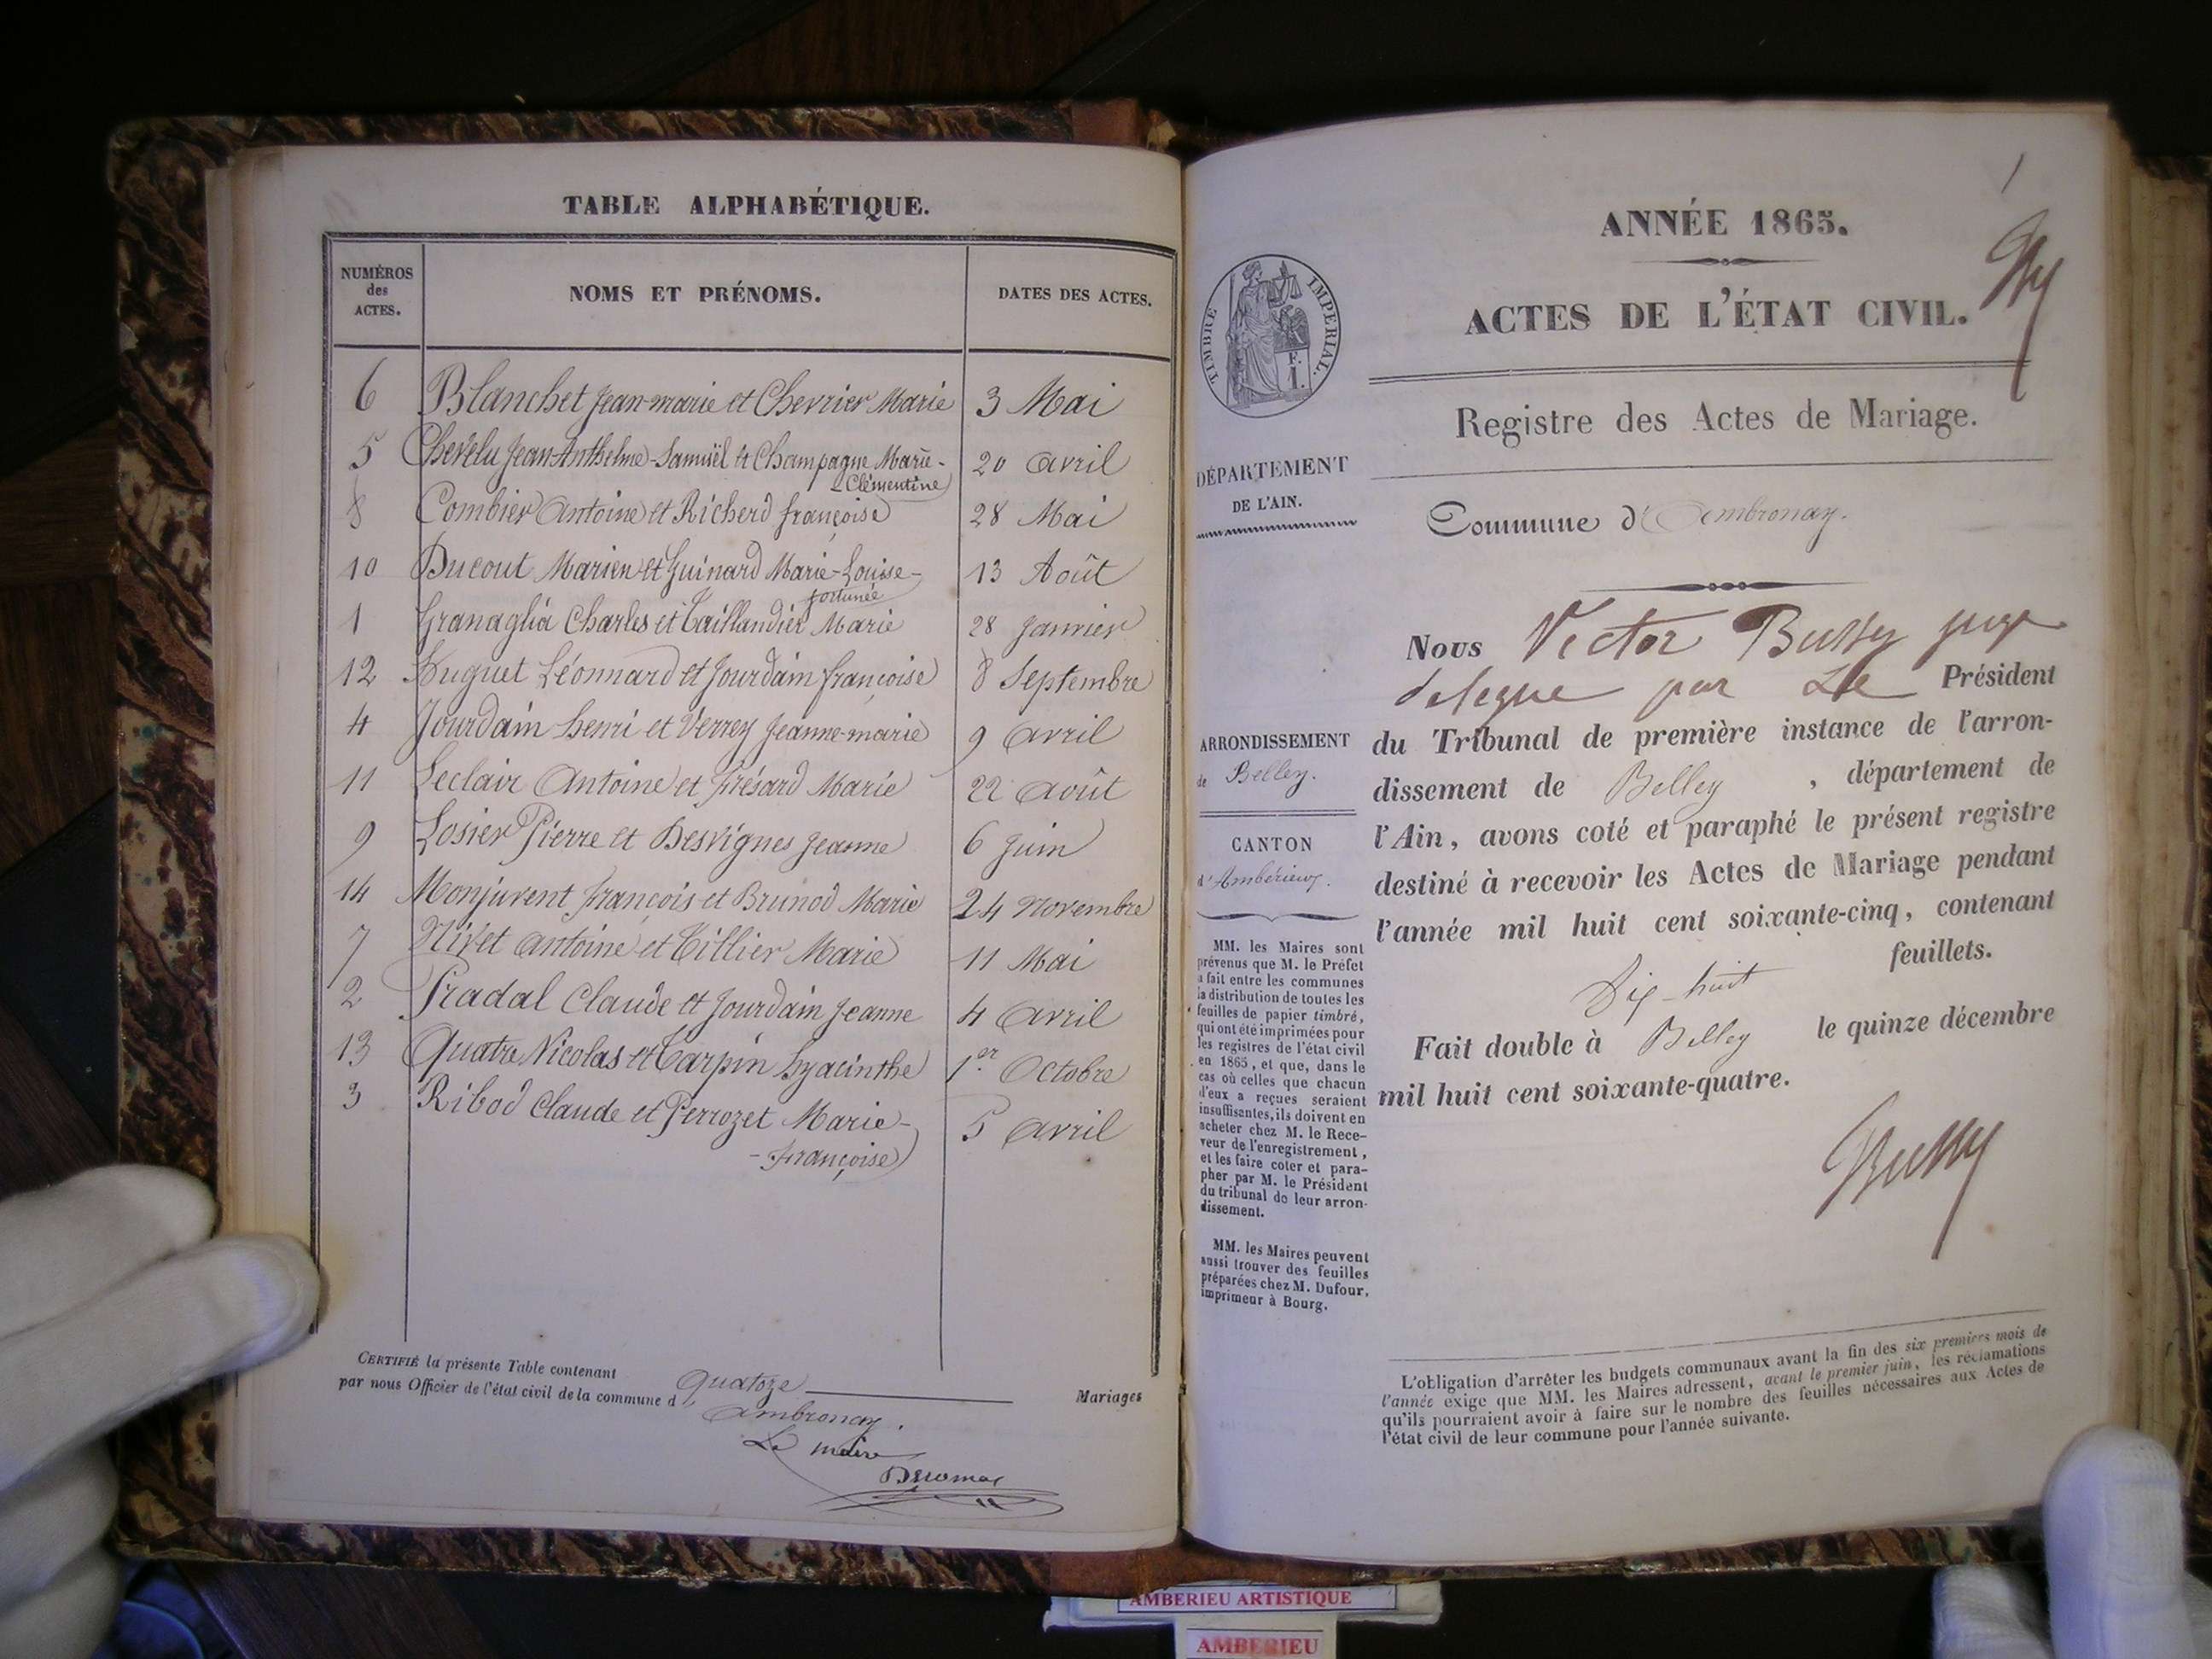 TABLE ALPHABÉTIQUE.
NUMÉROS
des
ACTES.
NOMS ET PRÉNOMS.
DATES DES ACTES.
6 Blanchet Jean-marie et Chevrier Marie 3 Mai
5 Chevelu Jean Anthelme-Samuël et Champagne Marie- 20 avril
Clémentine
8 Combier Antoine et Richerd françoise 28 Mai
10 Ducout Marien et Guinard Marie-Louise- 13 Août
fortunée
1 Granaglia Charles et Taillandier Marie 28 Janvier
12 Huguet Léonnard et Jourdain françoise 8 Septembre
4 Jourdain henri et Verrey Jeanne-marie 9 avril
11 Leclair Antoine et Frésard Marie 22 août
9 Losier Pierre et Desvignes Jeanne 6 Juin
14 Monjuvent françois et Brunod Marie 24 Novembre
7 Nivet antoine et Tillier Marie 11 Mai
2 Pradal Claude et Jourdain Jeanne 4 avril
13 Quatre Nicolas et Tarpin hyacinthe 1er Octobre
3 Ribod Claude et Perrozet Marie- 5 avril
-Françoise
CERTIFIÉ la présente Table contenant quatoze Mariages
par nous Officier de l'état civil de la commune d'ambronay.
Le maire
ANNÉE 1865.
1
ACTES DE L'ÉTAT CIVIL.
Registre des Actes de Mariage.
TIMBRE IMPERIAL.
DÉPARTEMENT
DE L'AIN.
Commune d'Ambronay.
ARRONDISSEMENT
de Belley.
CANTON
d'Ambérieux.
MM. les Maires sont
prévenus que M. le Préfet
a fait entre les communes
la distribution de toutes les
feuilles de papier timbré,
qui ont été imprimées pour
les registres de l'état civil
en 1865, et que, dans le
cas où celles que chacun
d'eux a reçues seraient
insuffisantes, ils doivent en
acheter chez M. le Rece-
veur de l'enregistrement,
et les faire coter et para-
pher par M. le Président
du tribunal de leur arron-
dissement.
MM. les Maires peuvent
aussi trouver des feuilles
préparées chez M. Dufour,
imprimeur à Bourg.
Nous Victor Bussy juge
delegue par Le Président
du Tribunal de première instance de l'arron-
dissement de Belley, département de
l'Ain, avons coté et paraphé le présent registre
destiné à recevoir les Actes de Mariage pendant
l'année mil huit cent soixante-cinq, contenant
Dix-huit feuillets.
Fait double à Belley le quinze décembre
mil huit cent soixante-quatre.
Bussy
L'obligation d'arrêter les budgets communaux avant la fin des six premiers mois de
l'année exige que MM. les Maires adressent, avant le premier juin, les réclamations
qu'ils pourraient avoir à faire sur le nombre des feuilles nécessaires aux Actes de
l'état civil de leur commune pour l'année suivante.
AMBERIEU ARTISTIQUE
AMBERIEU